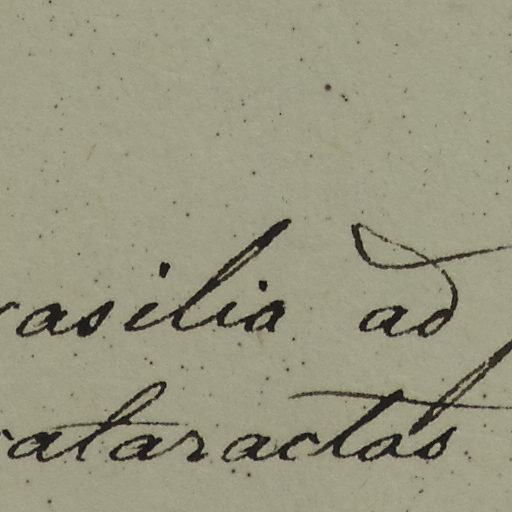 rasilia ad
cataractas